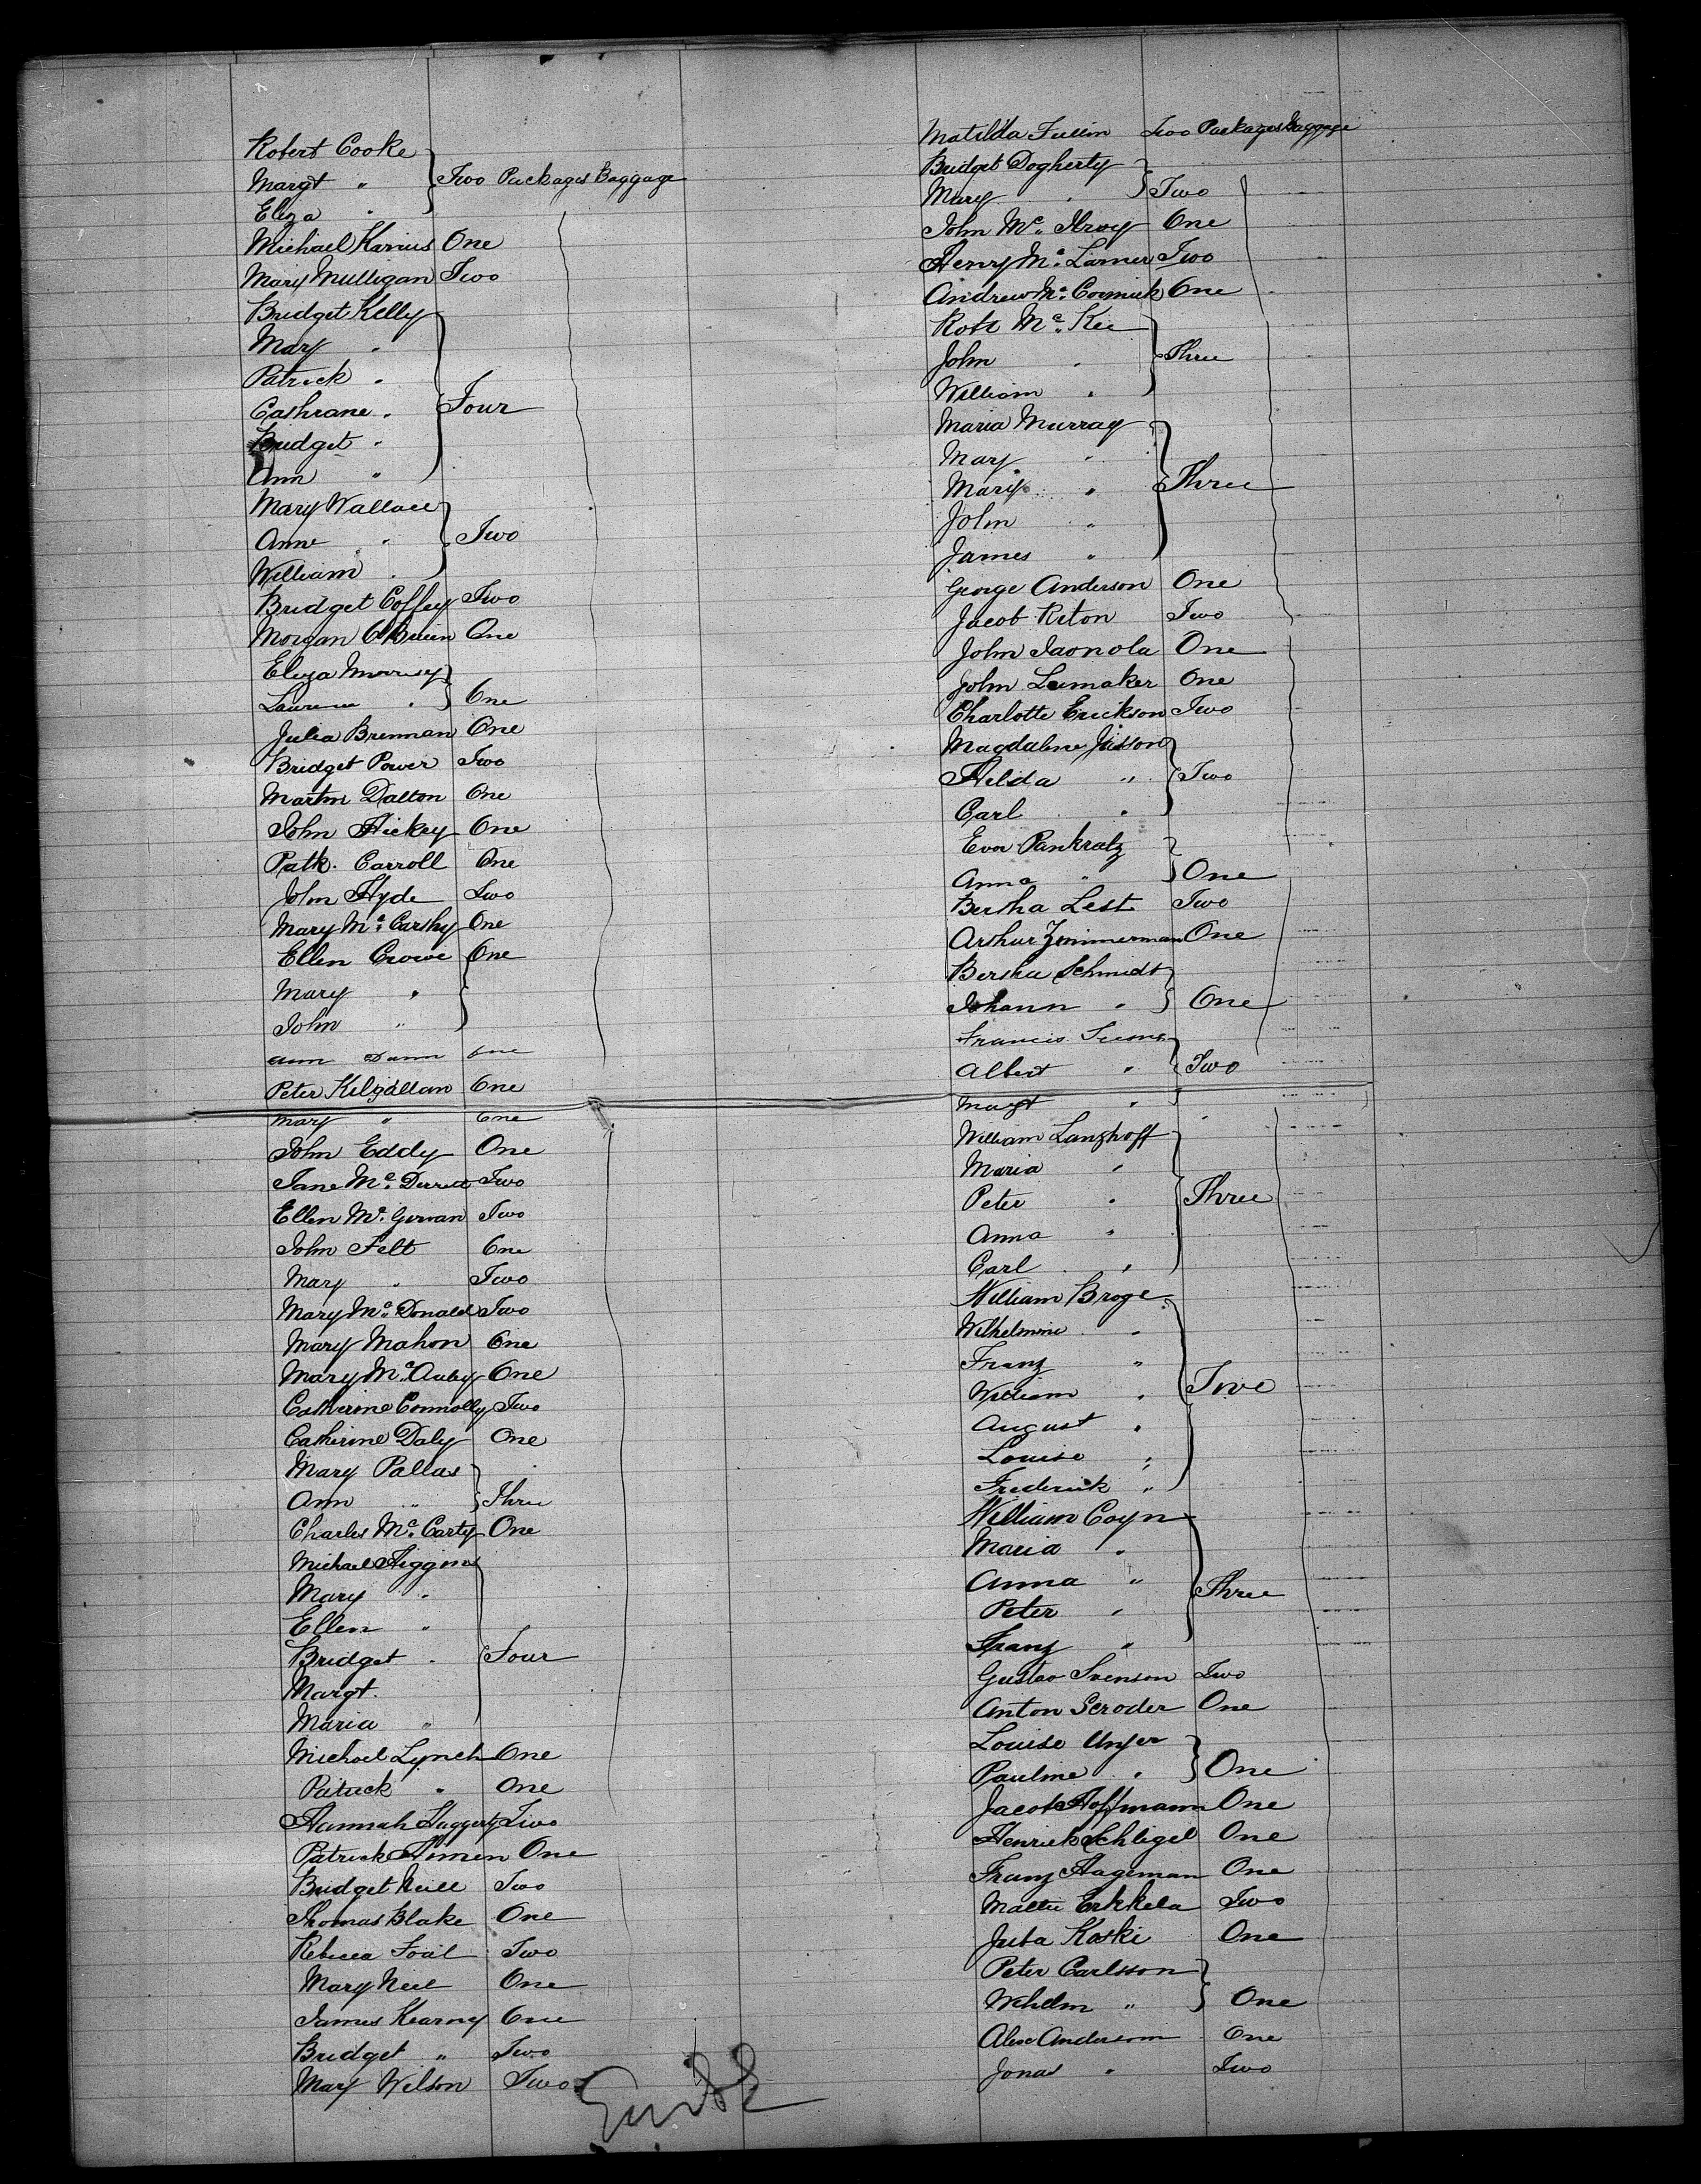 Robert Cooke
Margt " Two Packages Baggage
Eliza "
Michael Karius One
Mary Mulligan Two
Bridget Kelly
Mary "
Patrick "
Cathrane " Four
Bridget "
Ann "
Mary Wallace
Anne " Two
William "
Bridget Coffey Two
Morgan O'Brien One
Eliza Morrisey
Laurence " One
Julia Brennan One
Bridget Power Two
Martin Dalton One
John Hickey One
Patk. Carroll One
John Hyde Two
Mary Mc. Carthy One
Ellen Crowe One
Mary "
John "
Ann Dunn One
Peter Kilgallan One
Mary " One
John Eddy One
Jane Mc. Two
Ellen Mc. Girvan Two
John Felt One
Mary " Two
Mary Mc. Donald Two
Mary Mahon One
Mary Mc. Auby One
Catherine Connolly Two
Catherine Daly One
Mary Pallas
Ann " Three
Charles Mc. Carty One
Michael Higgins
Mary "
Ellen "
Bridget " Four
Margt.
Maria "
Michael Lynch One
Patrick " One
Hannah Haggerty Two
Patrick One
Bridget Neill Two
Thomas Blake One
Rebecca Foal Two
Mary Neil One
James Kearney One
Bridget " Two
Mary Wilson Two
Matilda Two Packages Baggage
Bridget Dogherty
Mary " Two
John Mc. Ilroy One
Henry Mc. Larner Two
Andrew Mc. Cormick One
Robt Mc. Kee
John " Three
William "
Maria Murray
Mary "
Mary " Three
John "
James "
George Anderson One
Jacob Riton Two
John Jaonola One
John Lumaker One
Charlotte Erickson Two
Magdalene
Hilda " Two
Carl "
Eva Pankratz
Anna " One
Bertha Lest Two
Arthur Zimmerman One
Bertha Schmidt
Johann " One
Francis
Albert " Two
Margt "
William Langhoff
Maria "
Peter " Three
Anna "
Carl "
William Broge
Wilhelmine "
Franz "
William " Two
August "
Louise "
Frederick "
William Coyn
Maria "
Anna " Three
Peter "
Franz "
Gustav Svenson Two
Anton Scroder One
Louise Unger
Pauline " One
Jacob Hoffmann One
Henrick Schligel One
Franz Hageman One
Mattu Erkkela Two
Juba Koski One
Peter Carlsson
Wihelm " One
Alex Anderson One
Jonas " Two